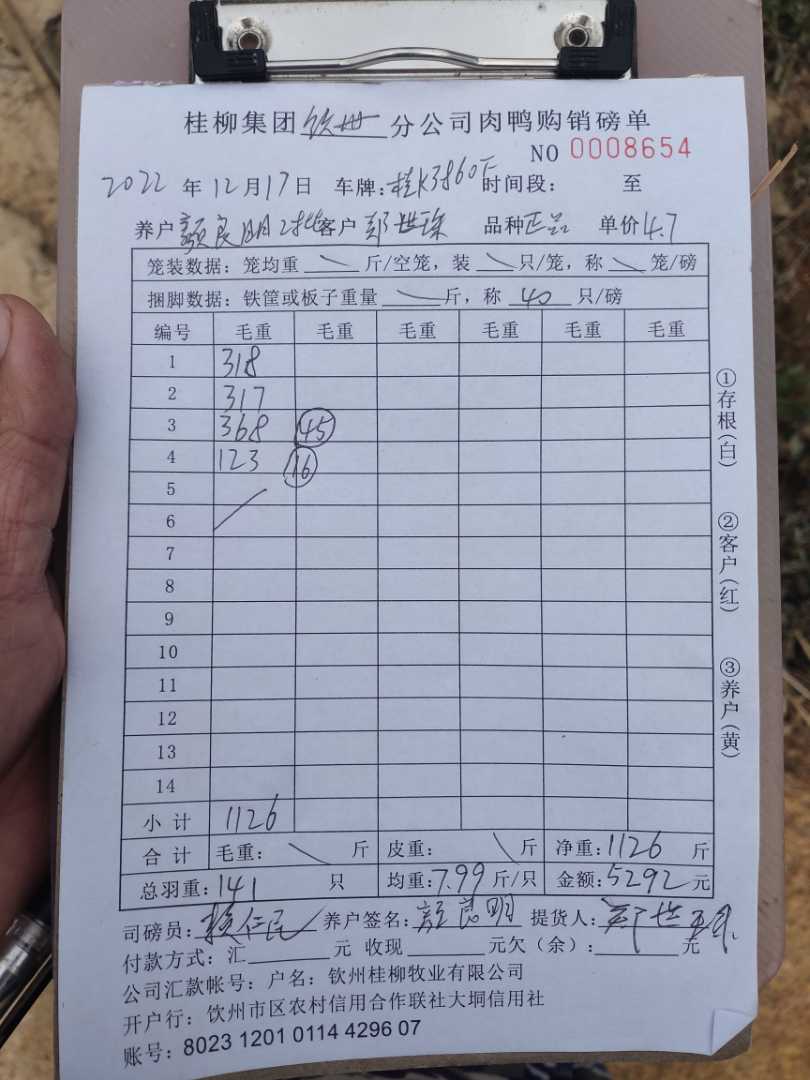 桂柳集团钦州分公司肉鸭购销磅单
NO 0008654
2022 年 12月17日 车牌:桂K3860F 时间段: 至
养户 颜良明2批 客户 郑世琛 品种 正品 单价 4.7
笼装数据: 笼均重 斤/空笼, 装 只/笼, 称 笼/磅
捆脚数据: 铁筐或板子重量 斤, 称 40 只/磅
编号 毛重 毛重 毛重 毛重 毛重 毛重
1 318
2 317
3 368 45
4 123 16
5
6
7
8
9
10
11
12
13
14
小计 1126
合计 毛重: 斤 皮重: 斤 净重:1126 斤
总羽重:141 只 均重:7.99 斤/只 金额:5292 元
司磅员: 养户签名: 颜良明 提货人:
付款方式: 汇 元 收现 元欠(余): 元
公司汇款帐号: 户名: 钦州桂柳牧业有限公司
开户行: 钦州市区农村信用合作联社大垌信用社
账号: 8023 1201 0114 4296 07
①存根(白)
②客户(红)
③养户(黄)